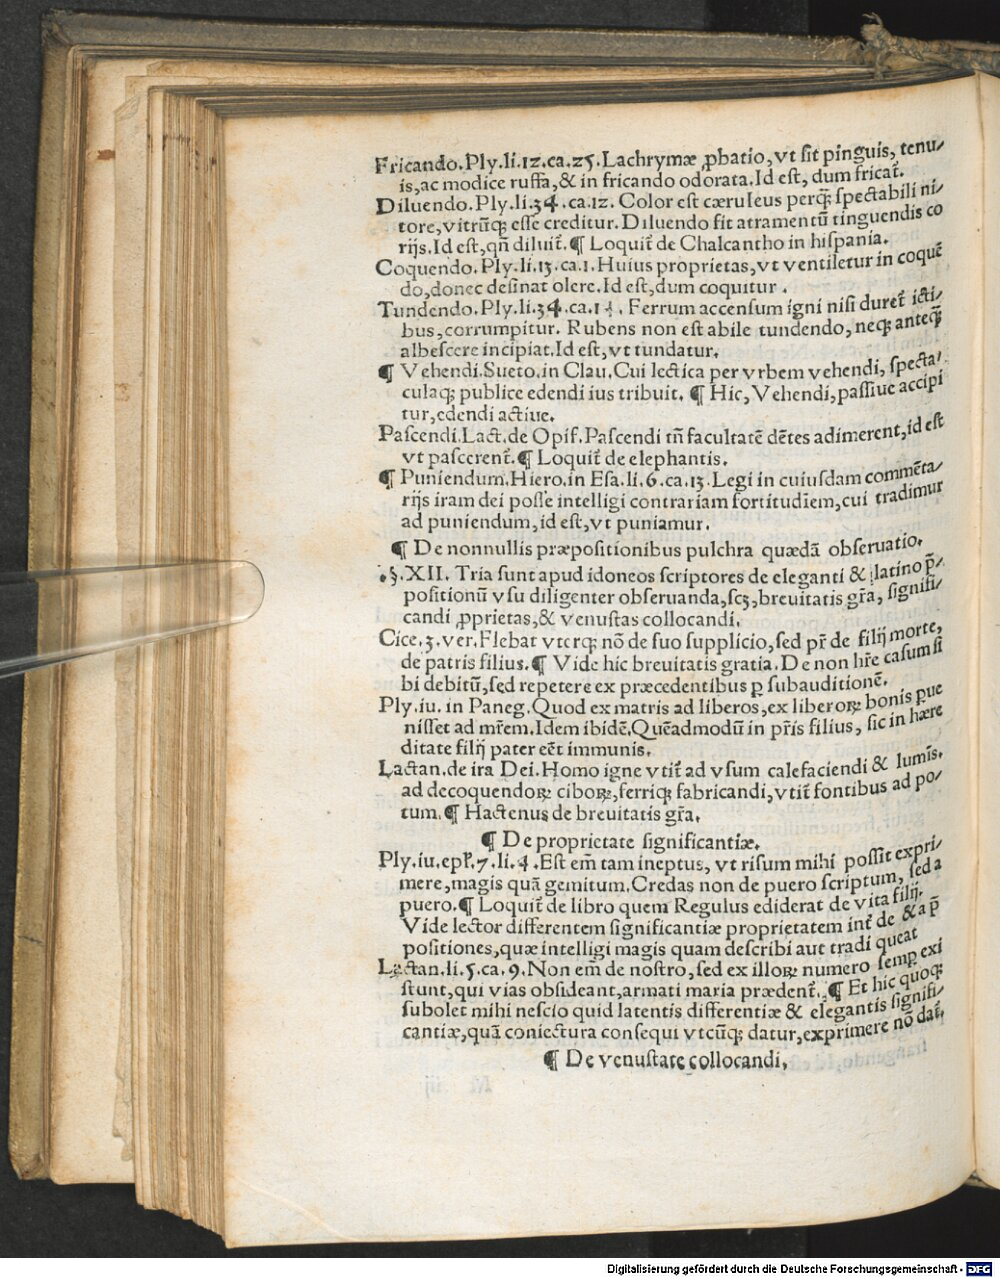 Fricando.Ply.li.12.ca.25.Lachrymæ ꝓbatio,vt ſit pinguis, tenu/
is,ac modice ruffa,& in fricando odorata.Id eſt, dum fricat̃.
Diluendo.Ply.li.34.ca.12. Color eſt cæruleus perq̃; ſpectabili ni/
tore,vitrũq; eſſe creditur. Diluendo fit atramentũ tinguendis co
rijs.Id eſt,qñ diluit̃.¶ Loquit̃ de Chalcantho in hiſpania.
Coquendo. Ply.li.13.ca.1.Huius proprietas,vt ventiletur in coquẽ
do,donec deſinat olere.Id eſt,dum coquitur .
Tundendo.Ply.li.34.ca.14. Ferrum accenſum igni niſi duret̃ icti/
bus,corrumpitur. Rubens non eſt abile tundendo, neq; anteq̃
albeſcere incipiat.Id eſt,vt tundatur.
¶ Vehendi.Sueto.in Clau.Cui lectica per vrbem vehendi, ſpecta/
culaq; publice edendi ius tribuit. ¶ Hic, Vehendi,paſſiue accipi
tur,edendi actiue.
Paſcendi.Lact.de Opif.Paſcendi tñ facultatẽ dẽtes adimerent,id eſt
vt paſcerent̃.¶ Loquit̃ de elephantis.
¶ Puniendum.Hiero.in Eſa.li.6.ca.13.Legi in cuiuſdam commẽta/
rijs iram dei poſſe intelligi contrariam fortitudiẽm,cui tradimur
ad puniendum,id eſt,vt puniamur.
¶ De nonnullis præpoſitionibus pulchra quædã obſeruatio.
.§.XII. Tria ſunt apud idoneos ſcriptores de eleganti & latino p̃/
poſitionũ vſu diligenter obſeruanda,ſcʒ,breuitatis gr̃a, ſignifi/
candi ꝓprietas,& venuſtas collocandi.
Cice.3.ver.Flebat vterq; nõ de ſuo ſupplicio,ſed pr̃ de filij morte,
de patris filius.¶ Vide hic breuitatis gratia.De non hr̃e caſum ſi
bi debitũ,ſed repetere ex præcedentibus ꝑ ſubauditionẽ.
Ply.iu. in Paneg.Quod ex matris ad liberos,ex liberoꝝ bonis ꝑue
niſſet ad mr̃em.Idem ibidẽ.Quẽadmodũ in pr̃is filius, ſic in hære
ditate filij pater eẽt immunis.
Lactan.de ira Dei.Homo igne vtit̃ ad vſum calefaciendi & lumĩs.
ad decoquendoꝝ ciboꝝ,ferriq; fabricandi,vtit̃ fontibus ad po/
tum.¶ Hactenus de breuitatis gr̃a.
¶ De proprietate ſignificantiæ.
Ply.iu.epl̃.7.li.4.Eſt em̃ tam ineptus, vt riſum mihi poſſit expri/
mere,magis quã gemitum.Credas non de puero ſcriptum, ſed a
puero.¶ Loquit̃ de libro quem Regulus ediderat de vita filij.
Vide lector differentem ſignificantiæ proprietatem int̃ de & a p̃
poſitiones,quæ intelligi magis quam deſcribi aut tradi queat
Lactan.li.5.ca.9.Non em̃ de noſtro,ſed ex illoꝝ numero ſemꝑ exi
ſtunt,qui vias obſideant,armati maria prædent̃.¶ Et hic quoq;
ſubolet mihi neſcio quid latentis differentiæ & elegantis ſignifi/
cantiæ,quã coniectura conſequi vtcũq; datur,exprimere nõ dat̃.
¶ De venuſtate collocandi.
Digitalisierung gefördert durch die Deutsche Forschungsgemeinschaft - DFG